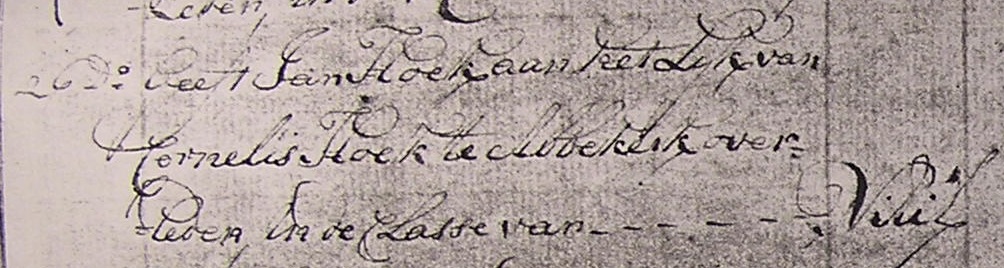 -leden, in
26 Do: Geeft Jan Hoek aan het Lijk van
Cornelis Hoek te Abbekerk over-
-leden, in de Classe van - - - - -